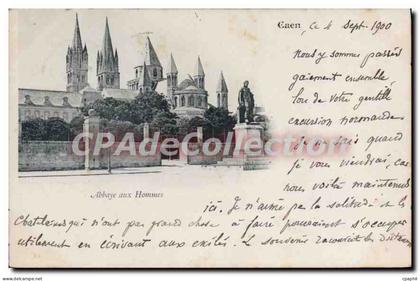 Caen, le 4 Sept. 1900
Nous y sommes passés
gaiement ensemble,
lors de votre gentille
excursion normande
quand
je vous reviendrai, car
nous voilà maintenant
CPArama.com
Abbaye aux Hommes
ici. Je n'aime pas la solitude et les
Chatelains qui n'ont pas grand chose à faire pourraient s'occuper
utilement en écrivant aux exilés. Le souvenir